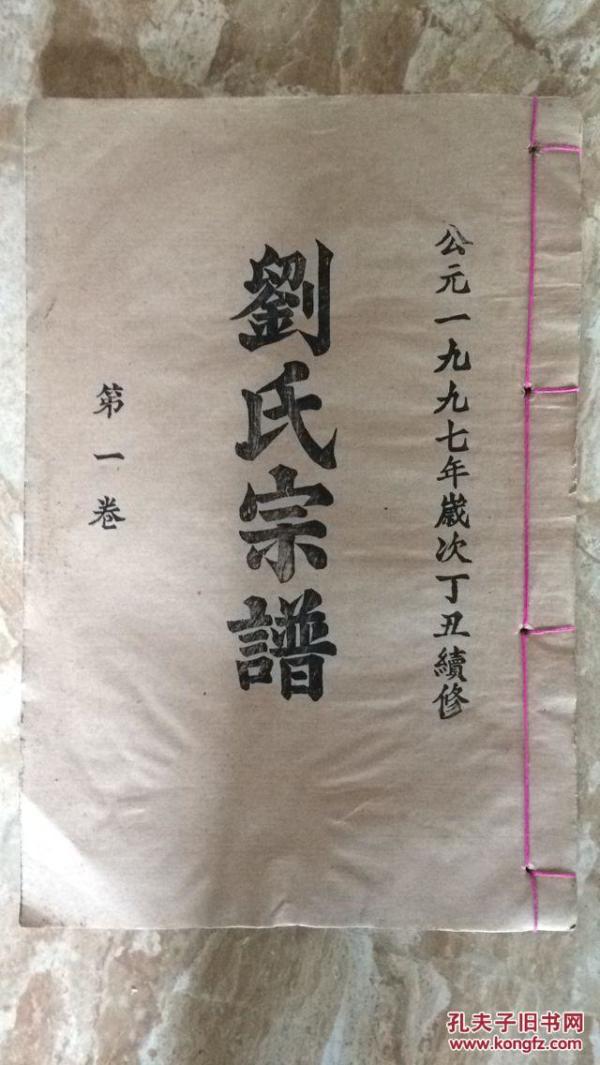 公元一九九七年歲次丁丑續修
劉氏宗譜
第一卷
孔夫子旧书网
www.kongfz.com